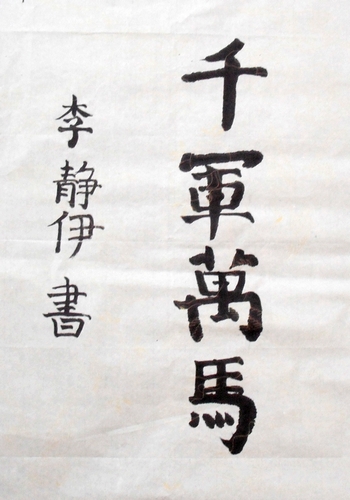 千軍萬馬
李靜伊書